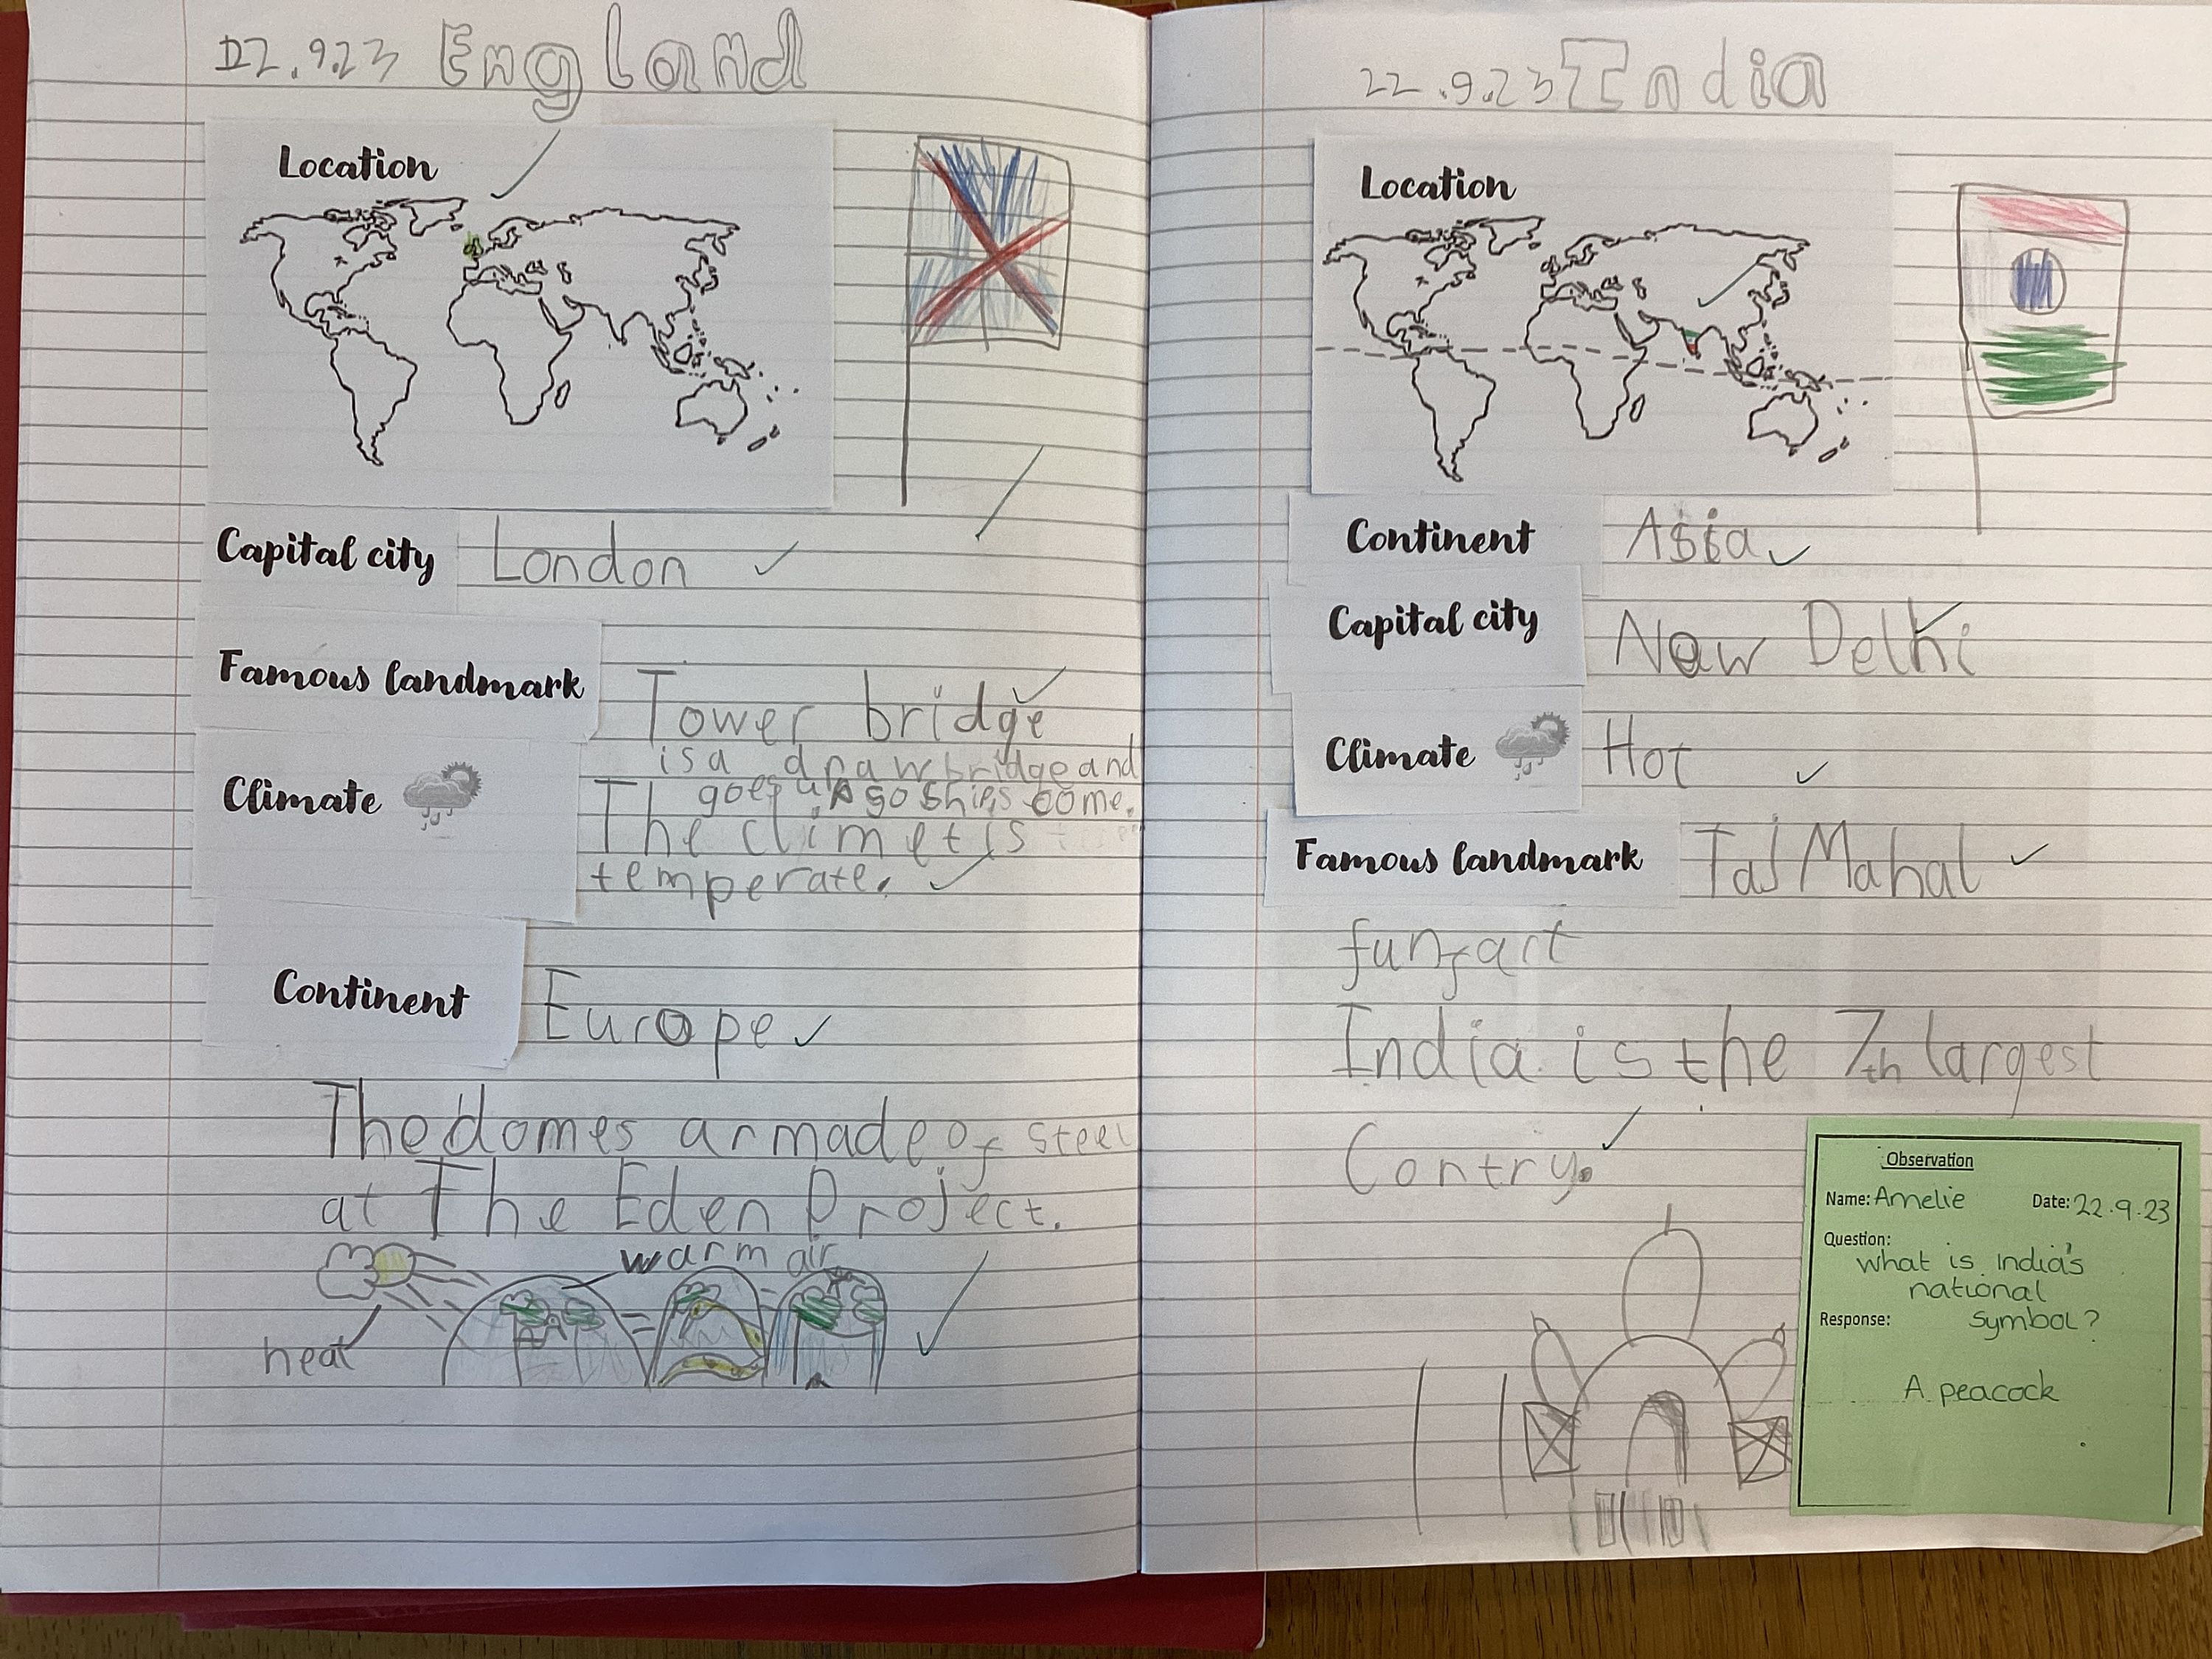 22.9.23 England
Location
Capital city London
Famous landmark Tower bridge
is a drawbridge and
goes up so ships come.
Climate The climet is
temperate.
Continent Europe
The domes ar made of steel
at The Eden Project.
warm air
heat
22.9.23 India
Location
Continent Asia
Capital city New Delhi
Climate Hot
Famous landmark Taj Mahal
fun fact
India is the 7th largest
Contry.
Observation
Name: Amelie Date: 22.9.23
Question:
what is India's
national
Response: symbol?
A peacock